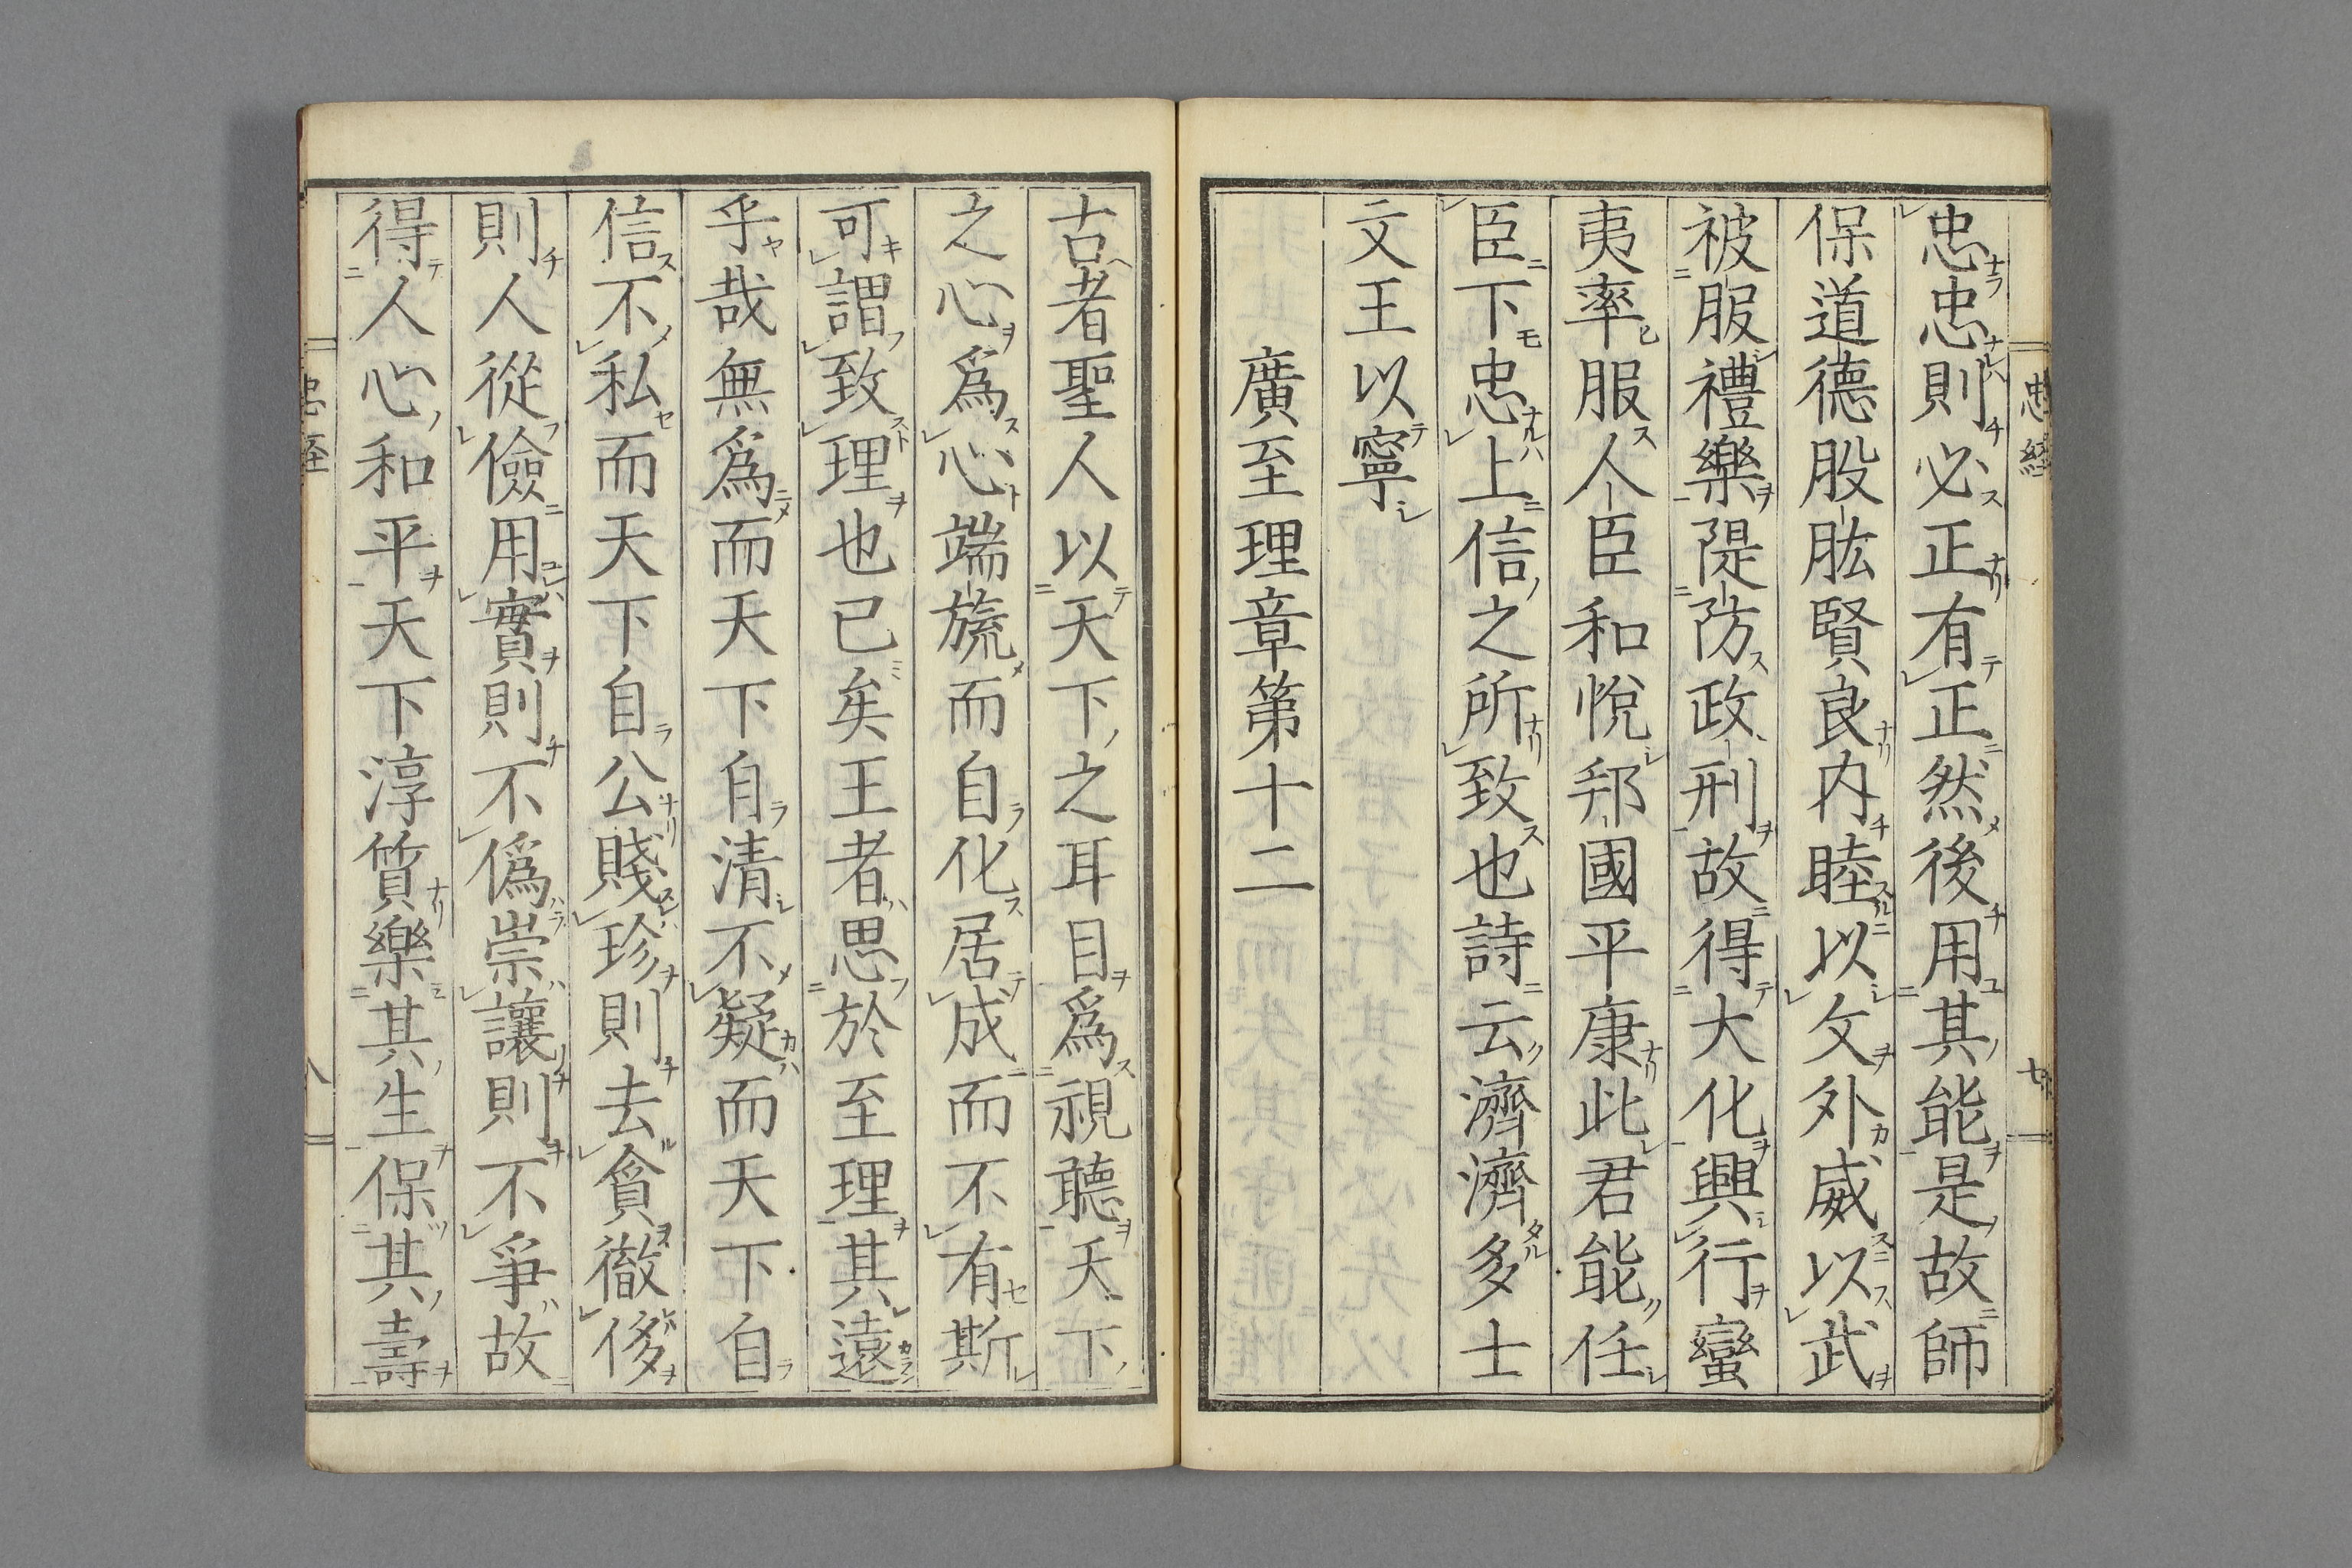 忠忠則必正有正然後用其能是故師
保道德股肱賢良内睦以文外威以武
被服禮樂隄防政刑故得大化興行蠻
夷率服人臣和悅邦國平康此君能任
臣下忠上信之所致也詩云濟濟多士
文王以寧
廣至理章第十二
古者聖人以天下之耳目爲視聽天下
之心爲心端旒而自化居成而不有斯
可謂致理也已矣王者思於至理其遠
乎哉無爲而天下自清不疑而天下自
信不私而天下自公賤珍則去貪徹侈
則人從儉用實則不僞崇讓則不爭故
得人心和平天下淳質樂其生保其壽
忠經
七
八